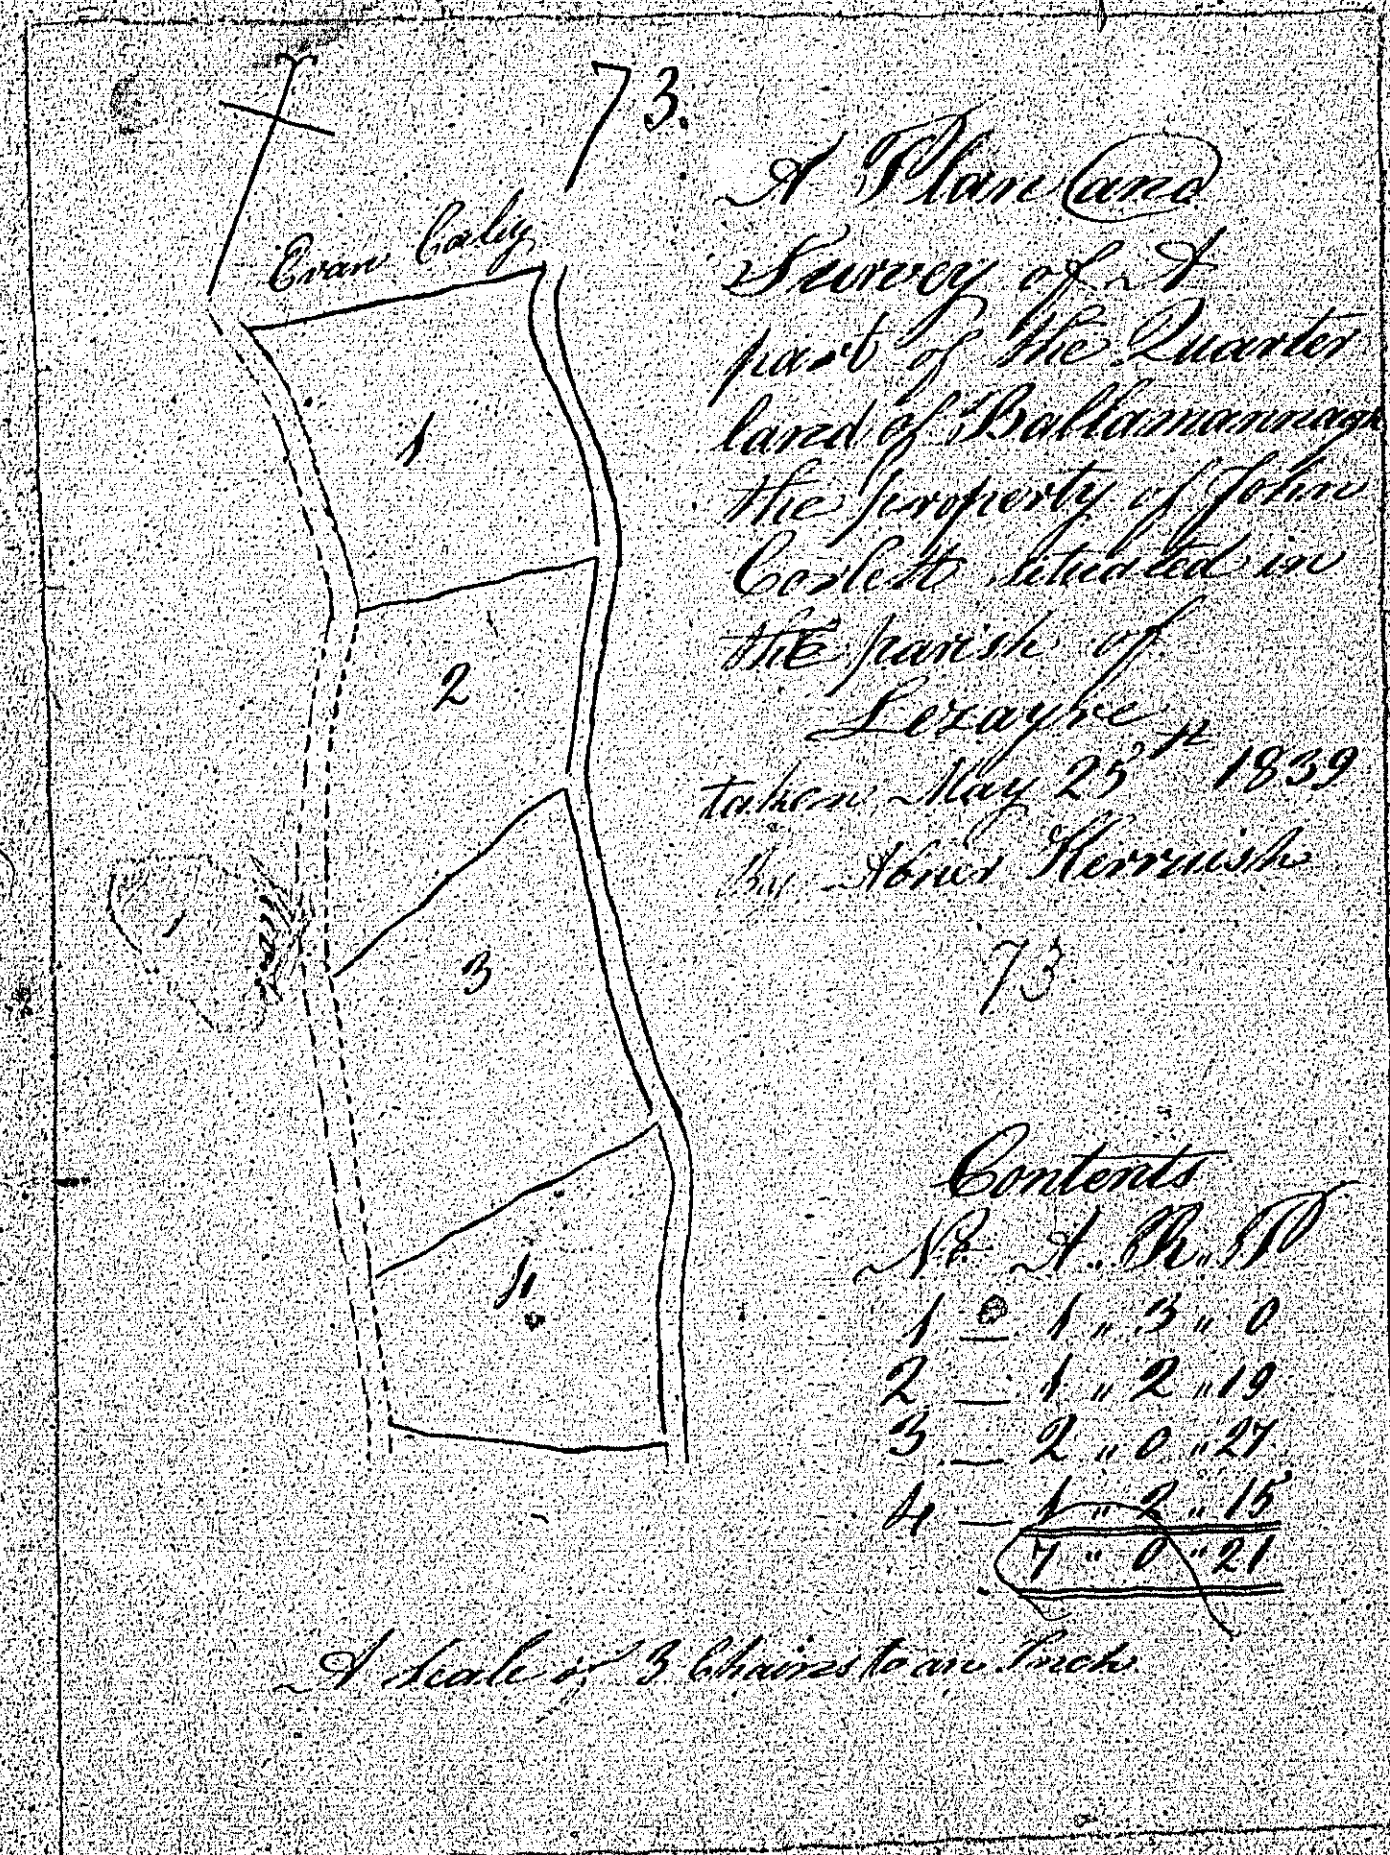 73.
Evan Caley
1
2
3
4
1
A Plan and
Survey of A
part of the Quarter
land of Ballamannagh
the property of John
Corlett situated in
the parish of
Lezayre
taken May 25th 1839
by Abner Kerruish
73
Contents
No. A.. R.. P
1 — 1 " 3 " 0
2 — 1 " 2 " 19
3 — 2 " 0 " 27
4 — 1 " 2 " 15
7 " 0 " 21
A scale of 3 Chains to an Inch